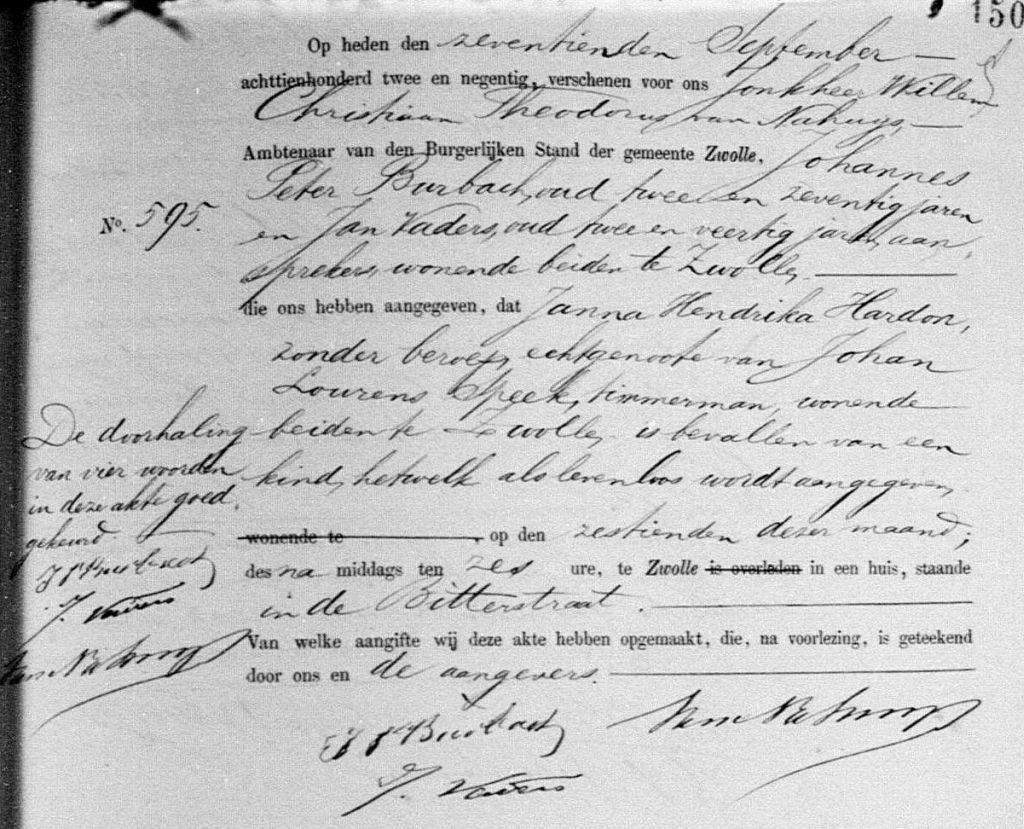 150
Op heden den zeventienden September
achttienhonderd twee en negentig, verschenen voor ons Jonkheer Willem
Christiaan Theodorus van Nahuys,
Ambtenaar van den Burgerlijken Stand der gemeente Zwolle, Johannes
Peter Burbach, oud twee en zeventig jaren
No. 595.
en Jan Vaders, oud twee en veertig jaren, aan
sprekers, wonende beiden te Zwolle,
die ons hebben aangegeven, dat Janna Hendrika Hardon,
zonder beroep, echtgenoote van Johan
Lourens Speek, timmerman, wonende
beiden te Zwolle, is bevallen van een
kind, hetwelk als levenloos wordt aangegeven,
wonende te , op den zestienden dezer maand,
des na middags ten zes ure, te Zwolle is overleden in een huis, staande
in de Bitterstraat.
Van welke aangifte wij deze akte hebben opgemaakt, die, na voorlezing, is geteekend
door ons en de aangevers.
De doorhaling
van vier woorden
in deze akte goed
gekeurd.
J P Burbach
J. Vaders
van Nahuys
J P Burbach
van Nahuys
J. Vaders